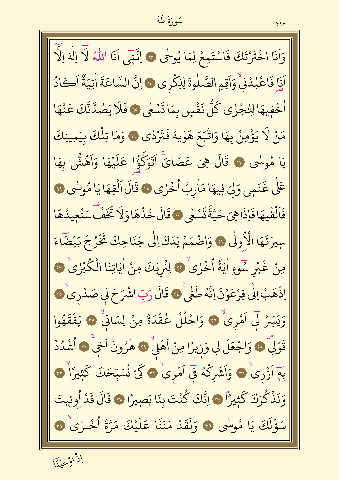 سُورَةُ طٰهٰ
وَاَنَا اخْتَرْتُكَ فَاسْتَمِعْ لِمَا يُوحٰى ﴿١٣﴾ اِنَّنٖٓى اَنَا اللّٰهُ لَٓا اِلٰهَ اِلَّٓا
اَنَا فَاعْبُدْنٖى وَاَقِمِ الصَّلٰوةَ لِذِكْرٖى ﴿١٤﴾ اِنَّ السَّاعَةَ اٰتِيَةٌ اَكَادُ
اُخْفٖيهَا لِتُجْزٰى كُلُّ نَفْسٍ بِمَا تَسْعٰى ﴿١٥﴾ فَلَا يَصُدَّنَّكَ عَنْهَا
مَنْ لَا يُؤْمِنُ بِهَا وَاتَّبَعَ هَوٰيهُ فَتَرْدٰى ﴿١٦﴾ وَمَا تِلْكَ بِيَمٖينِكَ
يَا مُوسٰى ﴿١٧﴾ قَالَ هِىَ عَصَاىَ اَتَوَكَّؤُا عَلَيْهَا وَاَهُشُّ بِهَا
عَلٰى غَنَمٖى وَلِىَ فٖيهَا مَاٰرِبُ اُخْرٰى ﴿١٨﴾ قَالَ اَلْقِهَا يَا مُوسٰى ﴿١٩﴾
فَاَلْقٰيهَا فَاِذَا هِىَ حَيَّةٌ تَسْعٰى ﴿٢٠﴾ قَالَ خُذْهَا وَلَا تَخَفْ سَنُعٖيدُهَا
سٖيرَتَهَا الْاُولٰى ﴿٢١﴾ وَاضْمُمْ يَدَكَ اِلٰى جَنَاحِكَ تَخْرُجْ بَيْضَٓاءَ
مِنْ غَيْرِ سُٓوءٍ اٰيَةً اُخْرٰى ﴿٢٢﴾ لِنُرِيَكَ مِنْ اٰيَاتِنَا الْكُبْرٰى ﴿٢٣﴾
اِذْهَبْ اِلٰى فِرْعَوْنَ اِنَّهُ طَغٰى ﴿٢٤﴾ قَالَ رَبِّ اشْرَحْ لٖى صَدْرٖى ﴿٢٥﴾
وَيَسِّرْ لٖٓى اَمْرٖى ﴿٢٦﴾ وَاحْلُلْ عُقْدَةً مِنْ لِسَانٖى ﴿٢٧﴾ يَفْقَهُوا
قَوْلٖى ﴿٢٨﴾ وَاجْعَلْ لٖى وَزٖيرًا مِنْ اَهْلٖى ﴿٢٩﴾ هٰرُونَ اَخٖى ﴿٣٠﴾ اُشْدُدْ
بِهٖٓ اَزْرٖى ﴿٣١﴾ وَاَشْرِكْهُ فٖٓى اَمْرٖى ﴿٣٢﴾ كَىْ نُسَبِّحَكَ كَثٖيرًا ﴿٣٣﴾
وَنَذْكُرَكَ كَثٖيرًا ﴿٣٤﴾ اِنَّكَ كُنْتَ بِنَا بَصٖيرًا ﴿٣٥﴾ قَالَ قَدْ اُوتٖيتَ
سُؤْلَكَ يَا مُوسٰى ﴿٣٦﴾ وَلَقَدْ مَنَنَّا عَلَيْكَ مَرَّةً اُخْرٰى ﴿٣٧﴾